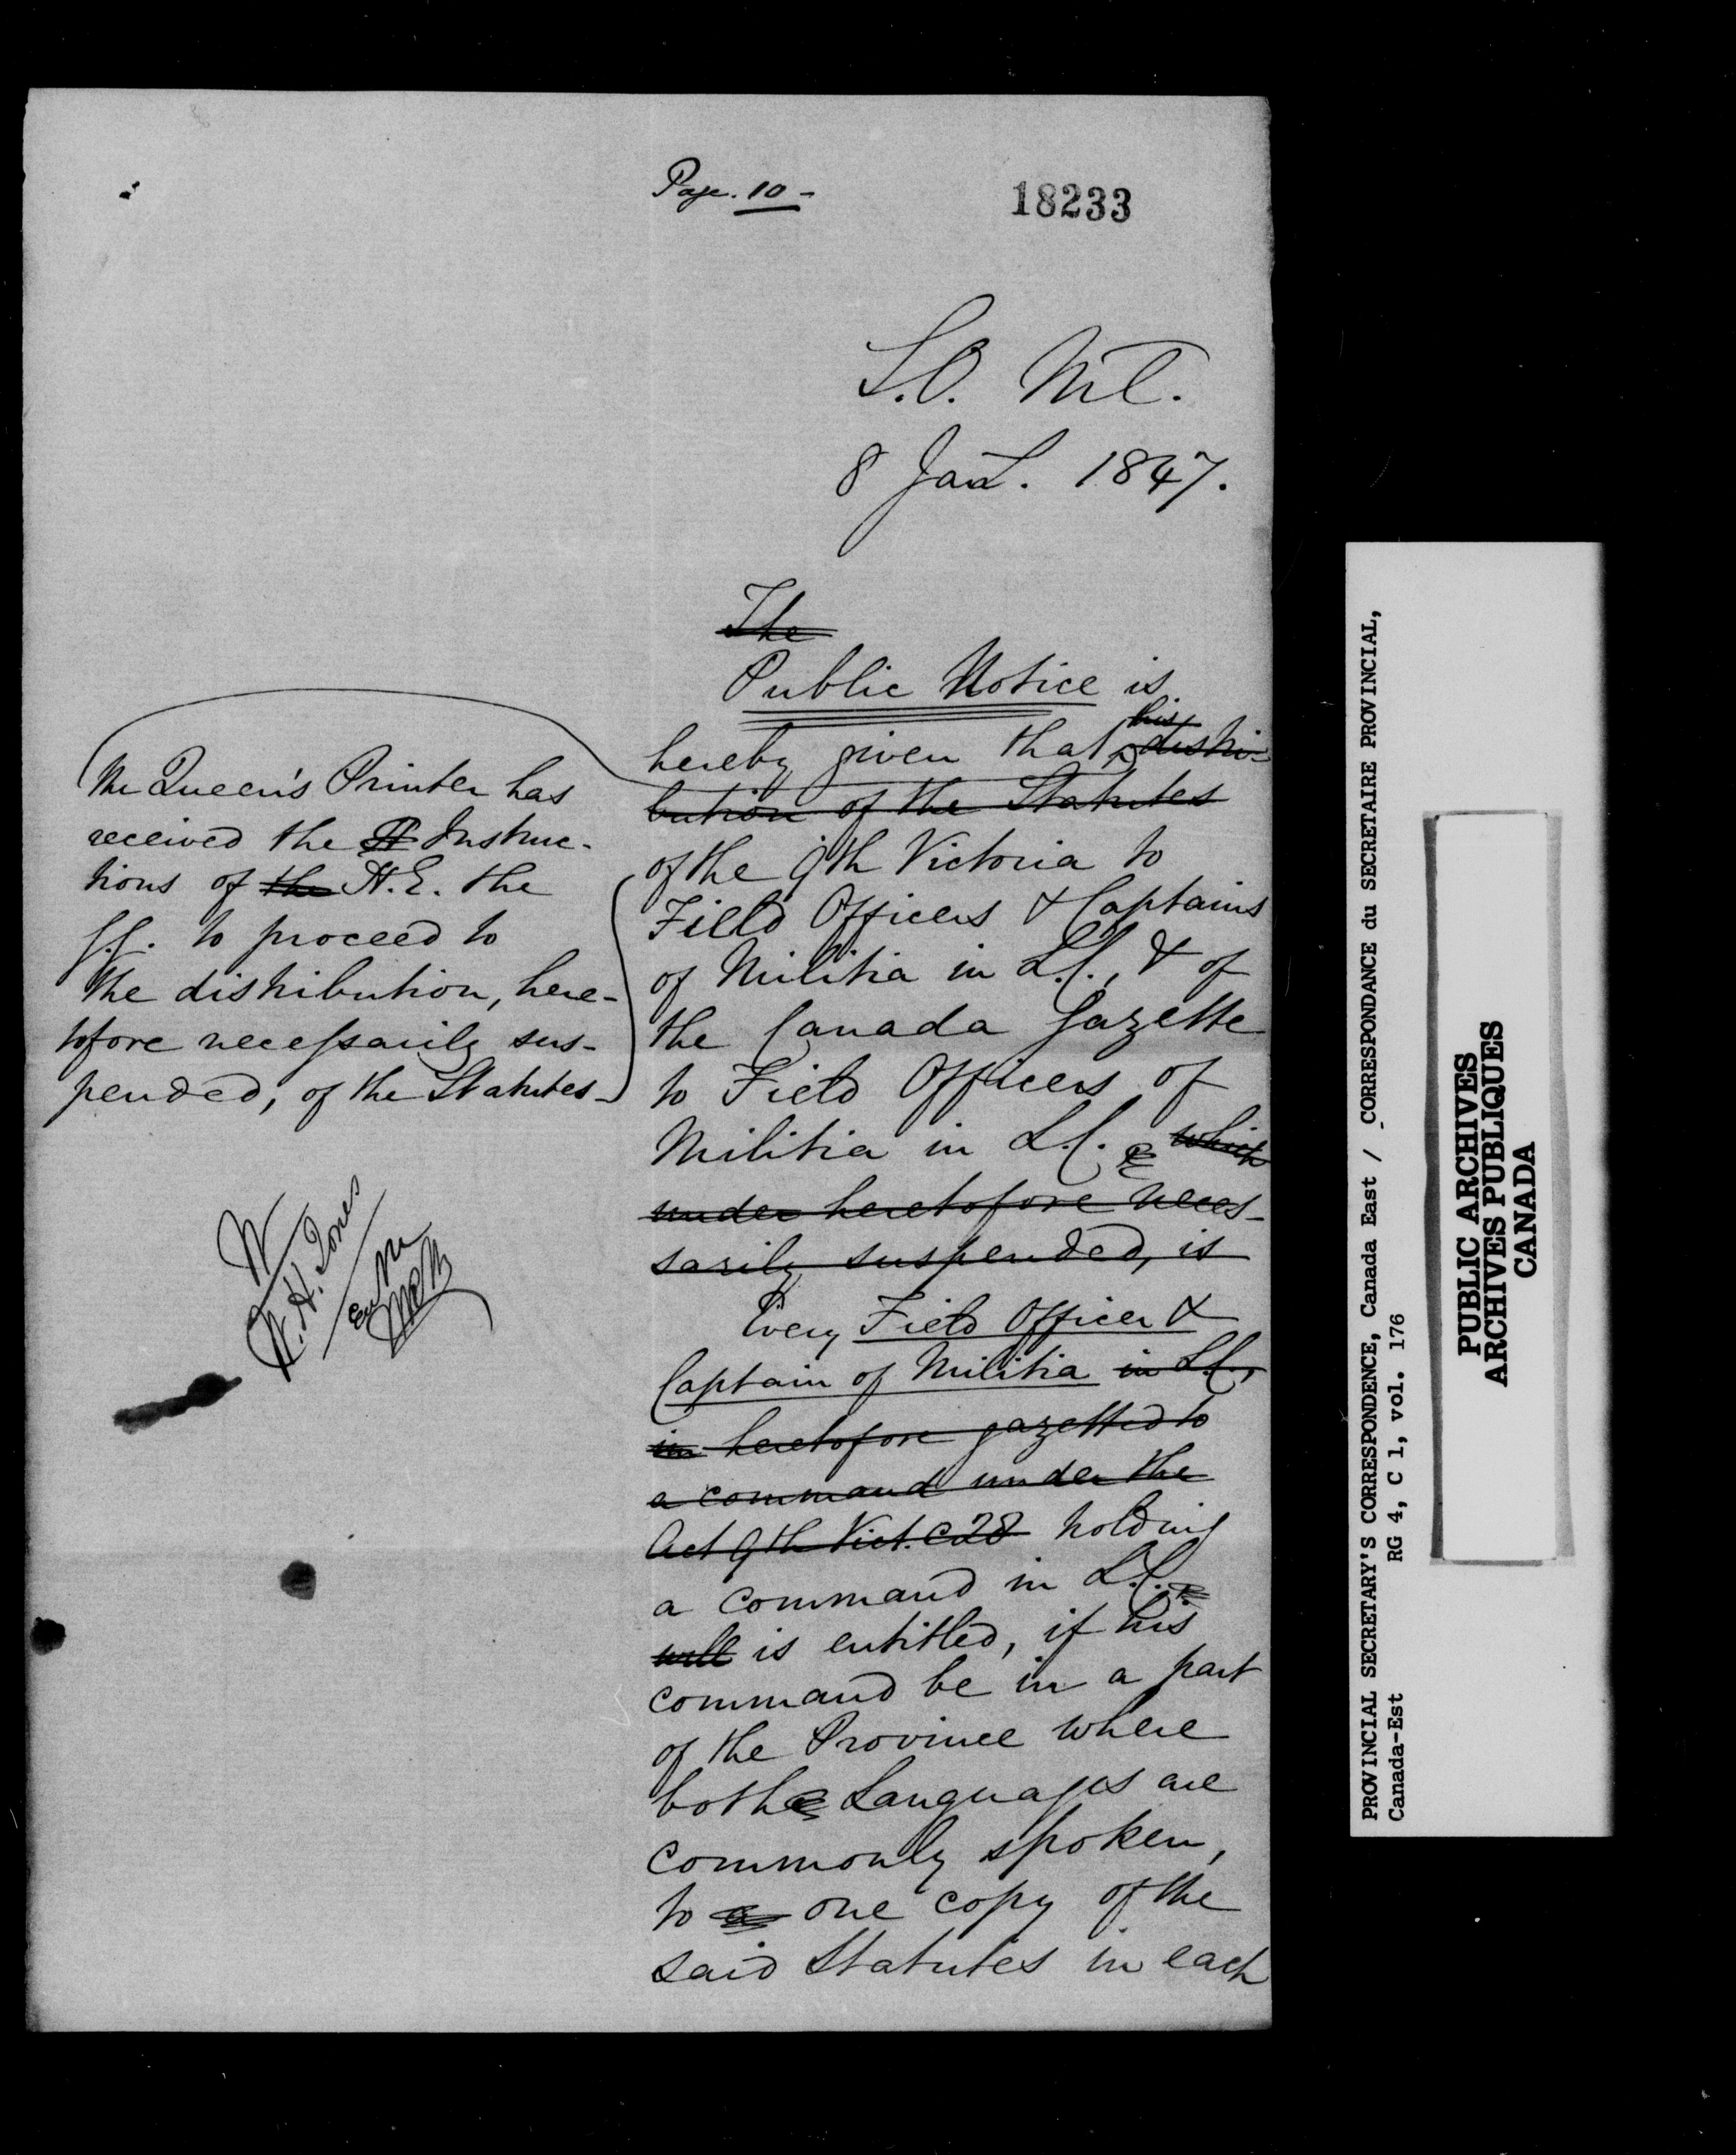 Page. 10 -
18233
S.O. Ml.
8 Jany. 1847.
The
Public Notice is
hereby given that his distri-
bution of the Statutes
of the 9th Victoria to
Field Officers & Captains
of Militia in L.C., & of
the Canada Gazette
to Field Officers of
Militia in L.C. which
under heretofore neces-
sarily suspended, is
Every Field Officer &
Captain of Militia in L.C,
in heretofore gazetted to
a command under the
Act 9th Vict. c 28 holding
a command in L.C.
will is entitled, if his
command be in a part
of the Province where
both Languages are
commonly spoken,
to a one copy of the
said Statutes in each
the Queen's Printer has
received the Instruc-
tions of the H.E. the
G.G. to proceed to
the distribution, here-
tofore necessarily sus-
pended, of the Statutes
H. Jones
PROVINCIAL SECRETARY'S CORRESPONDENCE, Canada East / CORRESPONDANCE du SECRETAIRE PROVINCIAL,
Canada-Est RG 4, C 1, vol. 176
PUBLIC ARCHIVES
ARCHIVES PUBLIQUES
CANADA